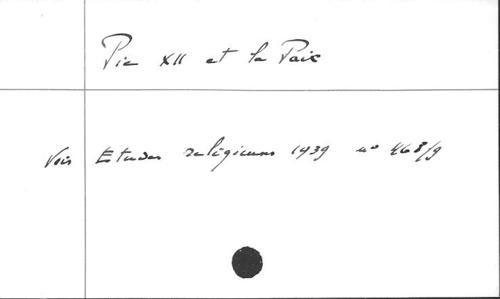 Pie XII et la Paix
Voir Etudes religieuses 1939 n° 468/9